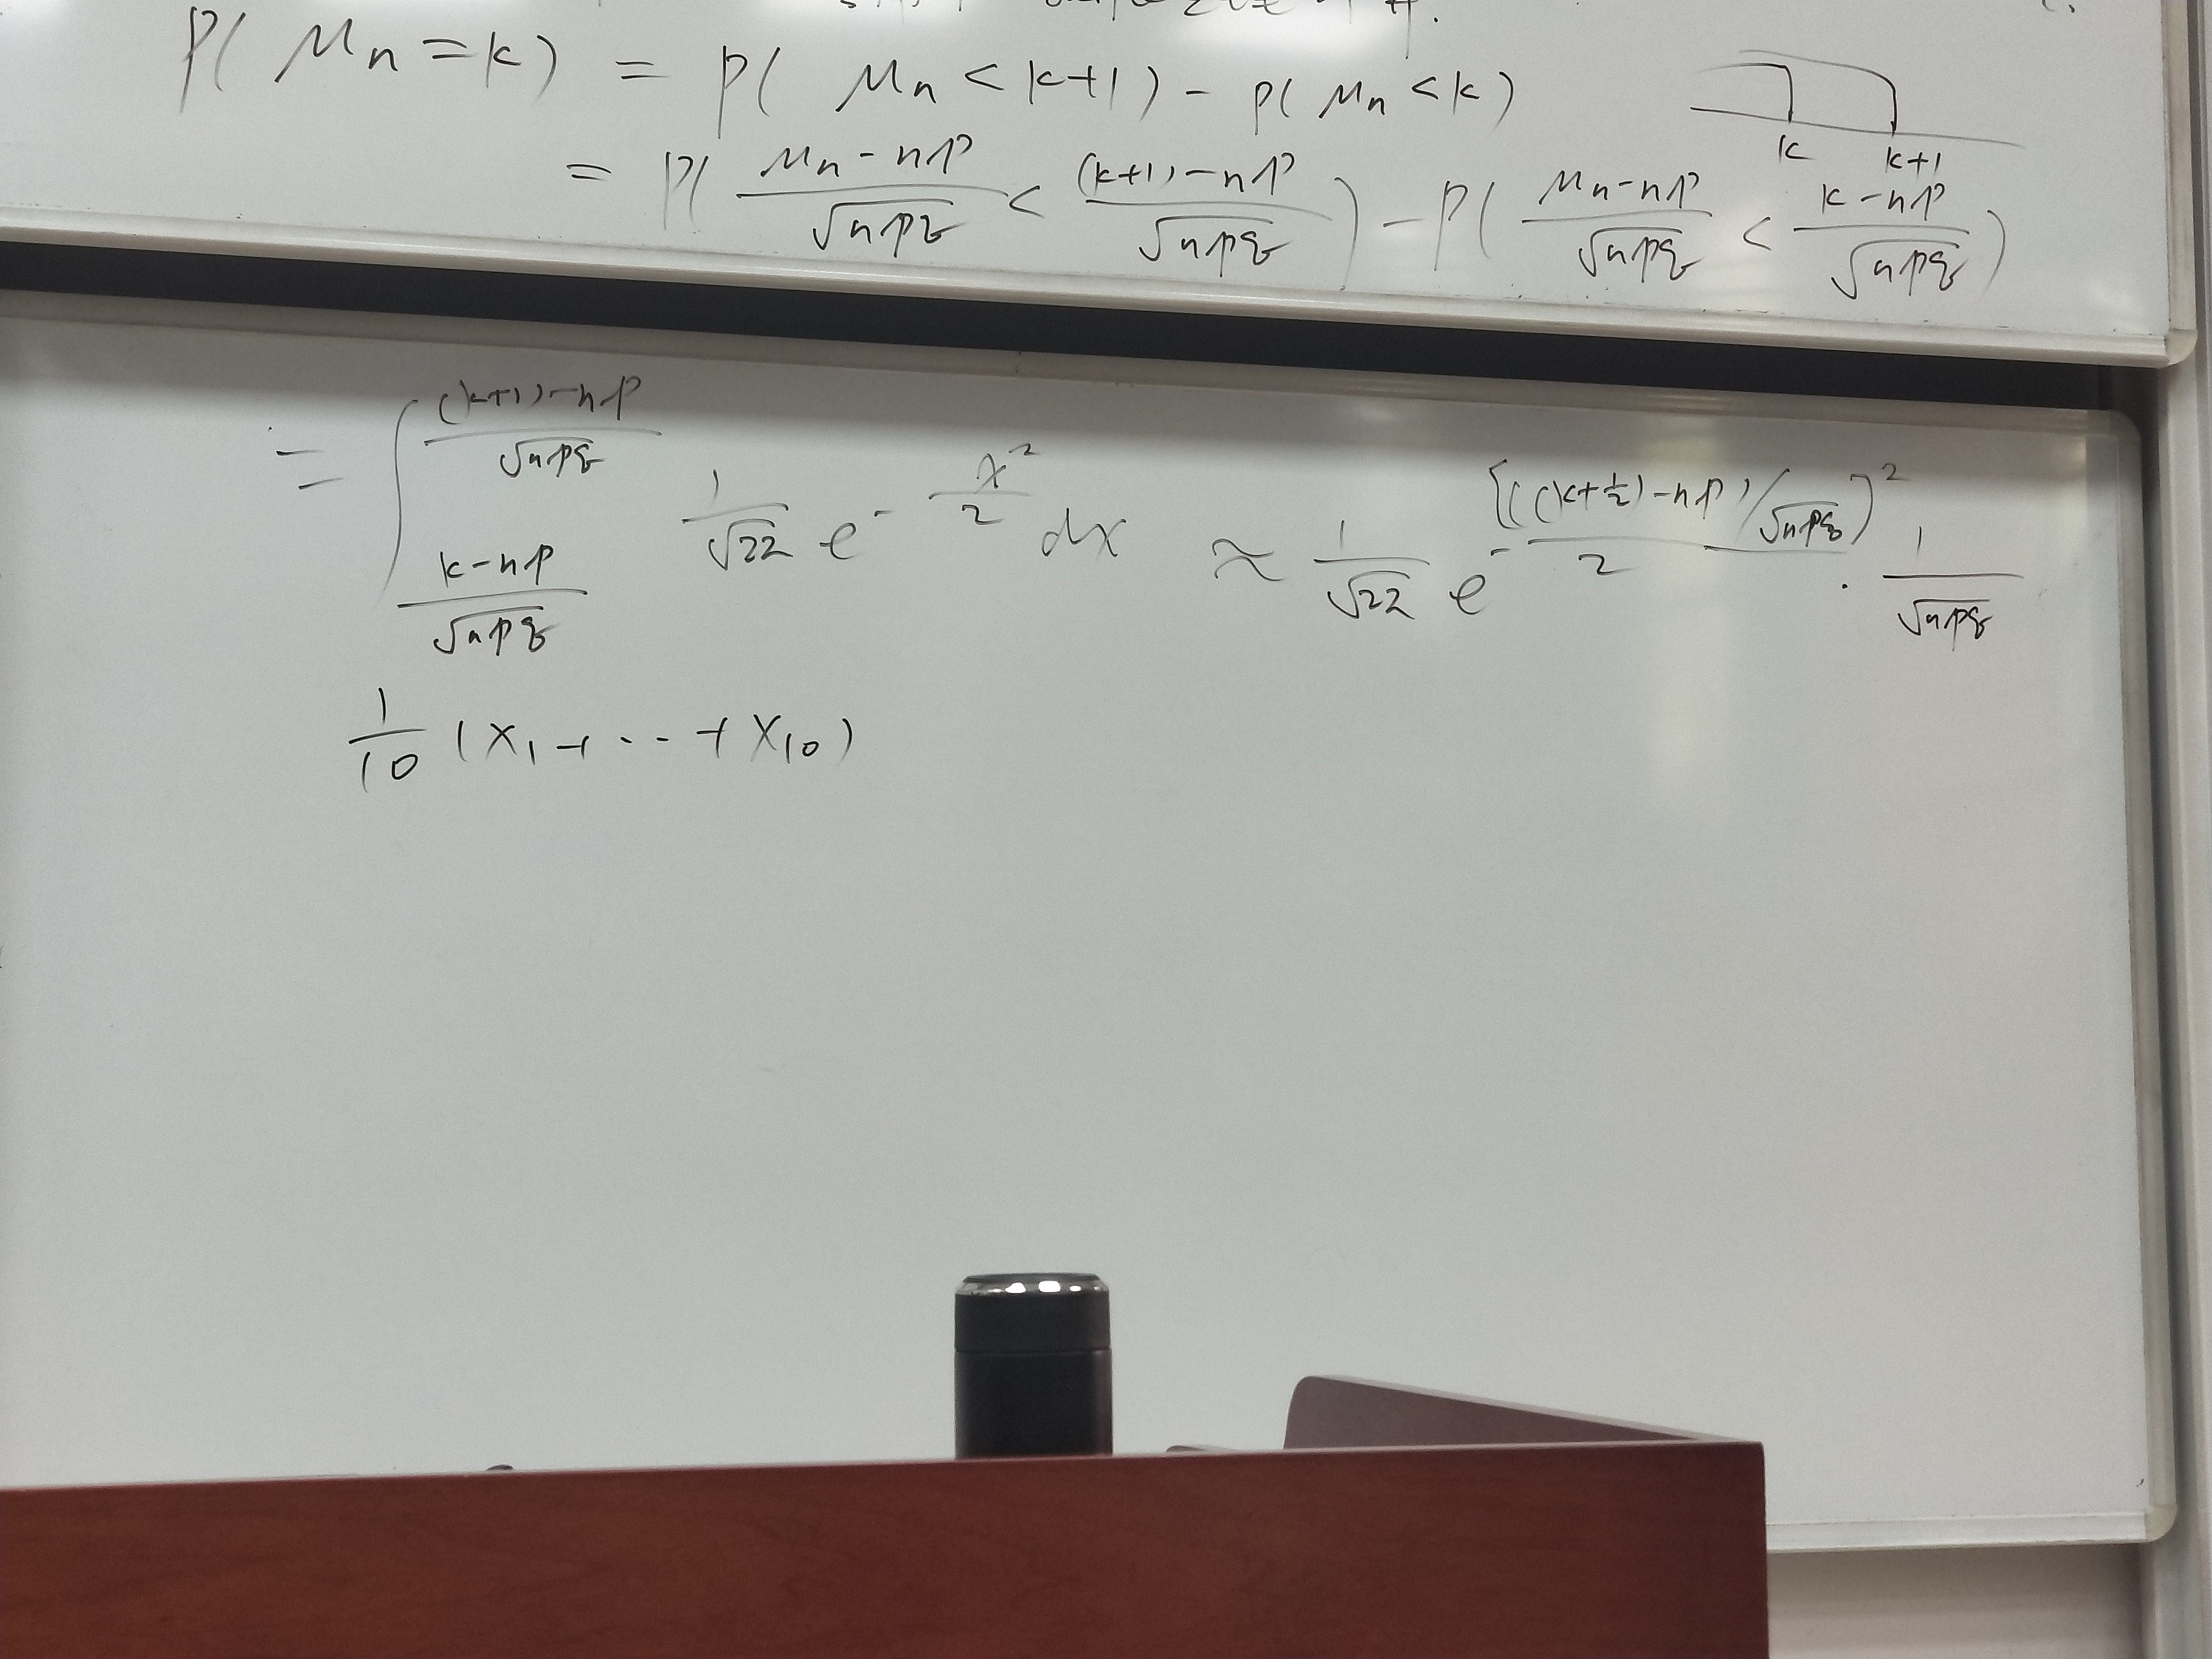 P( μn = k ) = P( μn < k+1 ) - P( μn < k )
k k+1
= P( (μn - np)/√npq < ((k+1) - np)/√npq ) - P( (μn - np)/√npq < (k - np)/√npq )
= ∫_{(k - np)/√npq}^{((k+1) - np)/√npq} 1/√2π e^{-x²/2} dx ≈ 1/√2π e^{-[((k+½) - np)/√npq]²/2} · 1/√npq
1/10 (X₁ + ··· + X₁₀)